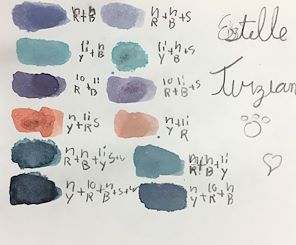 n/R + n/B
n/R + n/B + S
Estelle
li/Y + n/B
li/Y + n/B + S
10/R + li/B
10/R + li/B + S
n/Y + li/R S
n/Y + li/R
n/R + n/B + li/Y S+v
n/R + n/B + li/Y
n/Y + 10/R + n/B + S+v
n/Y + 10/R + n/B